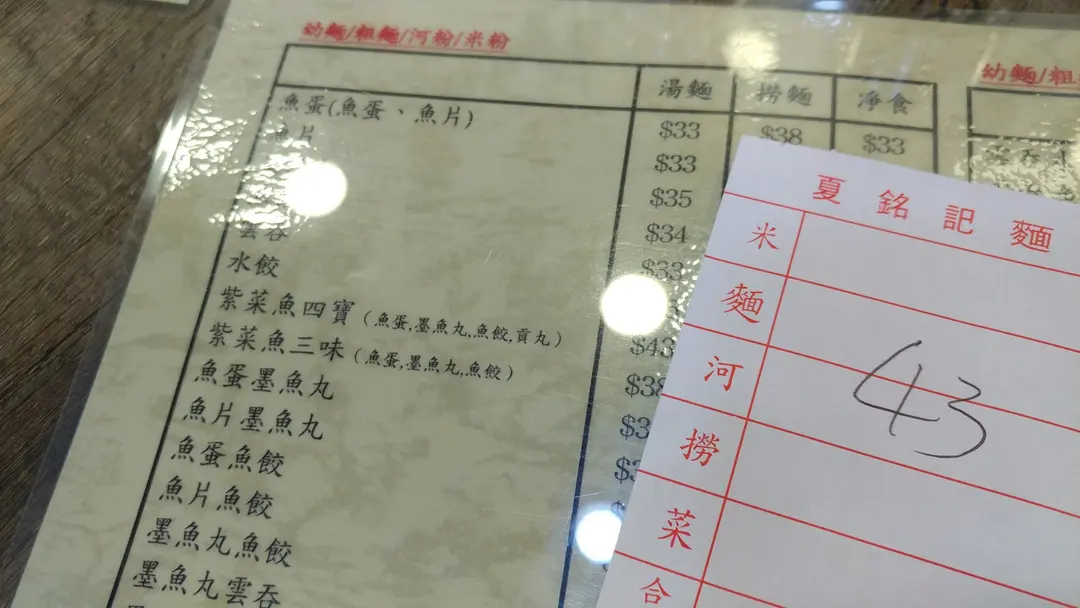 幼麵/粗麵/河粉/米粉
湯麵 撈麵 淨食
魚蛋(魚蛋、魚片) $33 $38 $33
魚片 $33
$35
雲吞 $34
水餃 $33
紫菜魚四寶 (魚蛋,墨魚丸,魚餃,貢丸)
紫菜魚三味 (魚蛋,墨魚丸,魚餃) $43
魚蛋墨魚丸 $38
魚片墨魚丸
魚蛋魚餃
魚片魚餃
墨魚丸魚餃
墨魚丸雲吞
幼麵/粗
夏銘記麵
米
麵
河 43
撈
菜
合